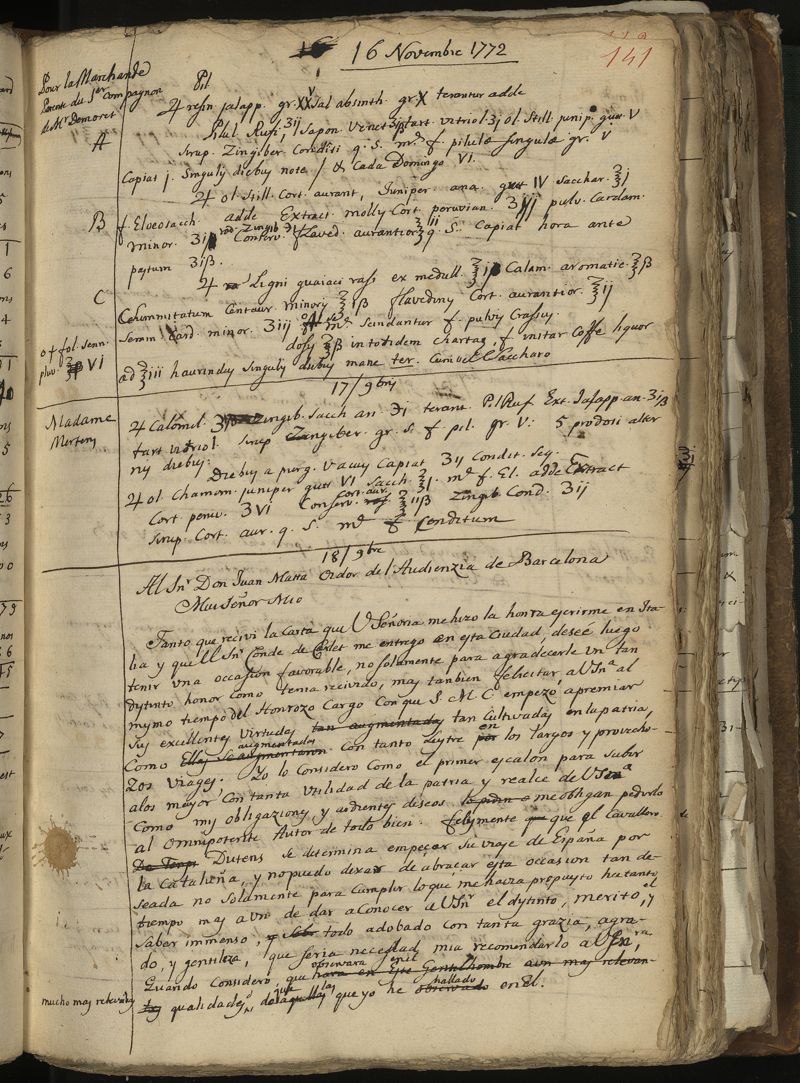 16 Novembre 1772
141
Pour la Marchande
Parente du Sr Compagnon
de Mr Demoret
Pil
A
♃ resin jalapp. gr. XXV Sal absinth. gr X terantur adde
Pilul Rufi, ʒij Sapon Venet ʒiβ tart. vitriol ʒj ol still. junip. gutt V
Sirup. Zingiber Conditi q. S. m. f. pilulæ Singulæ gr. V
Capiat j. Singulis diebus note / & Cada Domingo VI.
B
♃ ol. Still. Cort. aurant, Juniper. ana. gutt IV Sacchar. ℥j
f. Eleosacch. adde Extract. molly Cort. peruvian. ʒiij pulv. Cardam.
minor. ʒiβ rad. Zingib. Conserv. flaved. aurantior ℥iij q. S. Capiat hora ante
pastum ʒiβ.
C
♃ Ligni guaiaci rass ex medull. ℥iβ Calam. aromatic. ℥β
Summitatum Centaur. minoris ℥iβ flavedinis Cort. aurantior. ℥ij
Semin Card. minor. ʒiij m. Scindantur f. pulvis Crassus.
of fol. Senn.
VI
dosis ℥β in totidem chartas, f. instar Coffe liquor
ad ℥iii hauriendus singulis diebus mane ter. Cum vel Saccharo
17/9bris
Madame
Mertens
♃ Calomel. Zingib. Sacch an. ʒi terant. Pil Ruf Ext. Jalapp an. ʒiβ
tart vitriol. Sirup Zingiber. q. S. f. pil. gr. V: 5 pro dosi alter
nis diebus.
Diebus a purg. vacuis Capiat ʒij Condit. Seq.
♃ ol. Chamom. juniper gutt VI Sacch. ℥j. m. f. El. adde Extract
Cort peruv. ʒVI Conserv. Cort. aur. ℥iiβ Zingib. Cond. ʒij
Sirup. Cort. aur. q. S. m. f. Conditum
18/9bre
Al Snr Don Juan Matta Oidor de l'Audienzia de Barcelona
Mui Señor Mio
Tanto que recivi la carta que V Señoria me hizo la honra escrirme en Ita-
lia y que Ll Snr Conde de Carlet me entregò en esta Ciudad, deseé luego
tenir una occasion favorable, no solamente para agradecerle un tan
dystinto honor como tenia recivido, mas tanbien felicitar a VSna al
mysmo tiempo del Honrozo Cargo Con que S. M. C. empezò a premiar
Sus excellentes virtudes tan augmentadas tan Cultivadas en la patria,
Como Ellas se augmentaron augmentadas con tanto lustre por en los largos y provecho-
zos Viages. Yo lo Considero Como el primer escalon para subir
alos mayor, Con tanta utilidad de la patria y realce de VSna
Como mys obligazions y ardientes deseos me obligan pedirlo
al Omnipotente Autor de todo bien. felysmente que el Cavallero
Dutens se determina empeçar su viaje de España por
la Cataluña, y no puedo dexar de abraçar esta occasion tan de-
seada no solamente para Cumplir lo que me havia propuysto ha tanto
tiempo mas aun de dar a Conocer a VSnr el dystinto, merito, y el
Saber immenso, y todo adobado con tanta grazia, agra-
do, y gentileza, que seria necesdad mia recomendarlo a VSnra,
Quando Considero, que observara en il hara en Este Gentilhombre aun mas relevan-
mucho mas relevantes
tes qualidades, que aquellas que yo he observado hallado en el.